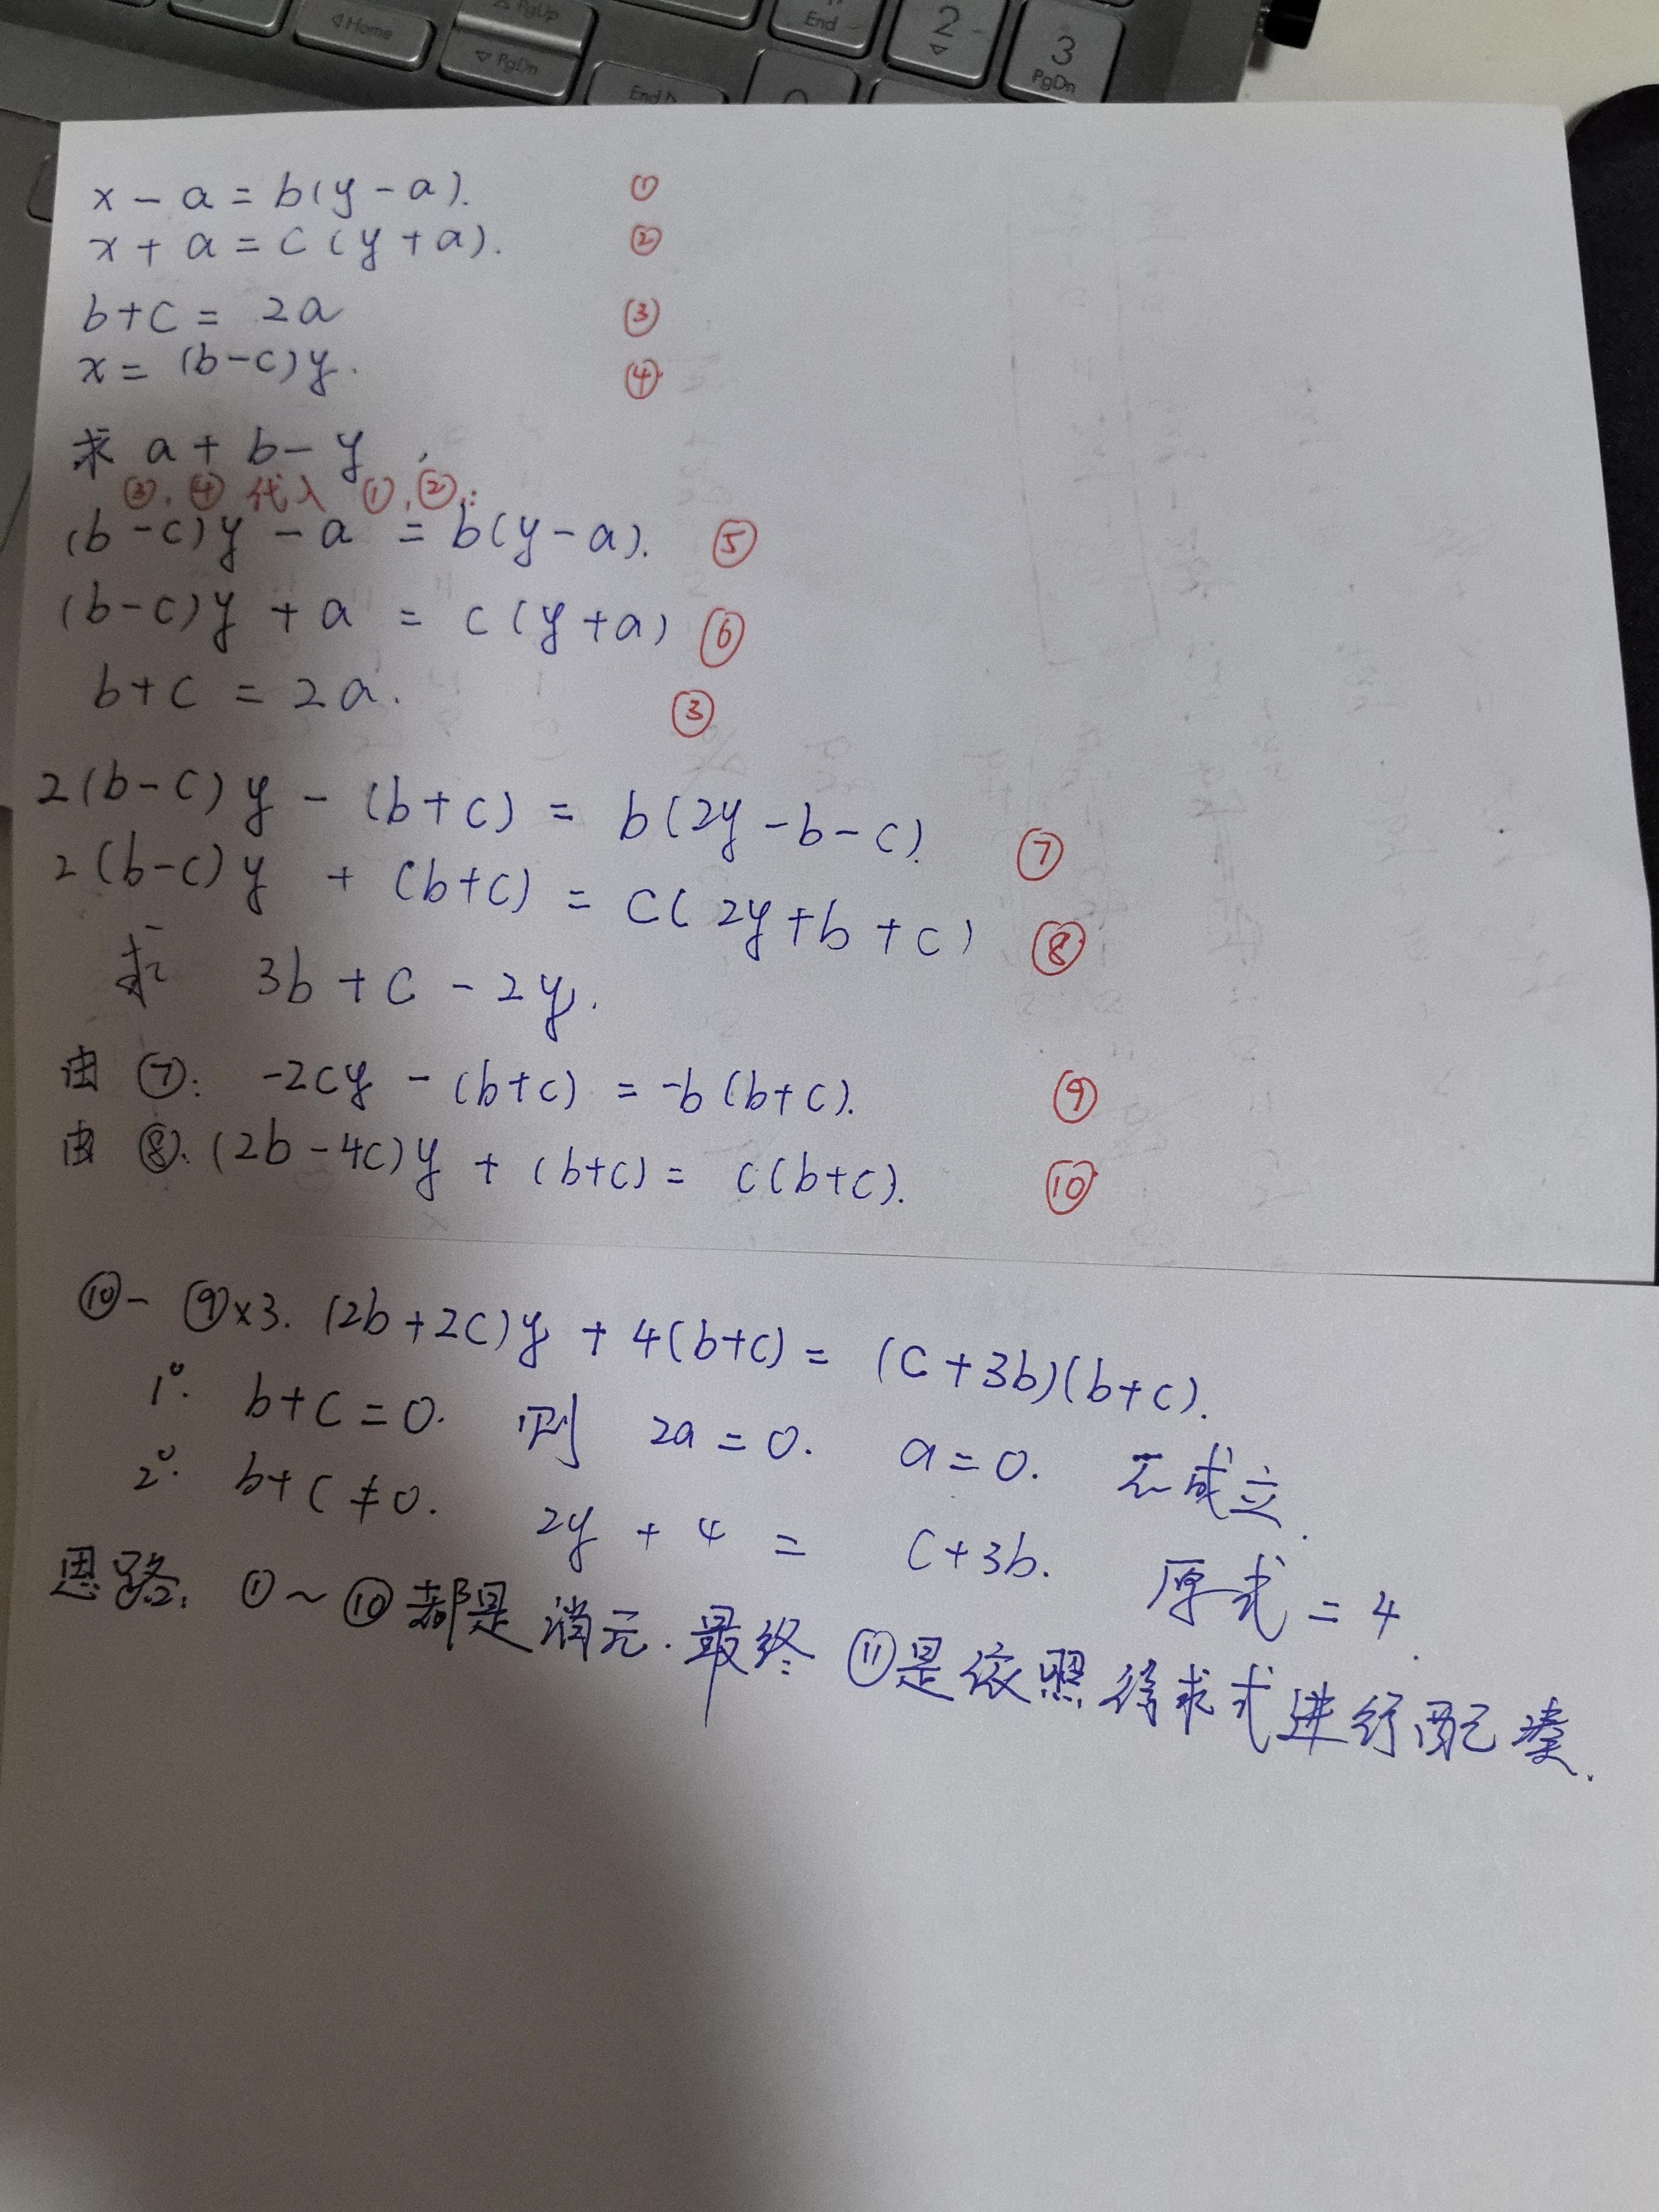 Home
PgUp
PgDn
End
End
2
3
PgDn
x - a = b(y - a). ①
x + a = c(y + a). ②
b+c = 2a ③
x = (b-c)y. ④
求 a + b - y.
③,④代入①,②:
(b-c)y - a = b(y-a). ⑤
(b-c)y + a = c(y+a) ⑥
b+c = 2a. ③
2(b-c)y - (b+c) = b(2y-b-c). ⑦
2(b-c)y + (b+c) = c(2y+b+c) ⑧
求 3b+c-2y.
由⑦: -2cy - (b+c) = -b(b+c). ⑨
由⑧: (2b-4c)y + (b+c) = c(b+c). ⑩
⑩-⑨×3. (2b+2c)y + 4(b+c) = (c+3b)(b+c).
1°. b+c=0. 则 2a=0. a=0. 不成立.
2°. b+c≠0. 2y+4 = c+3b. 原式=4.
思路: ①~⑩都是消元. 最终⑪是依照待求式进行配凑.